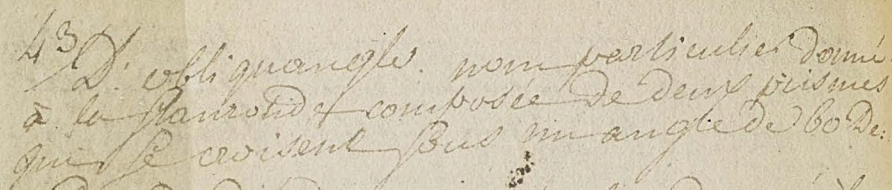 43 D: obliquangle. nom particulier donné
à la staurotide composée de deux prismes
qui se croisent sous un angle de 60 De: